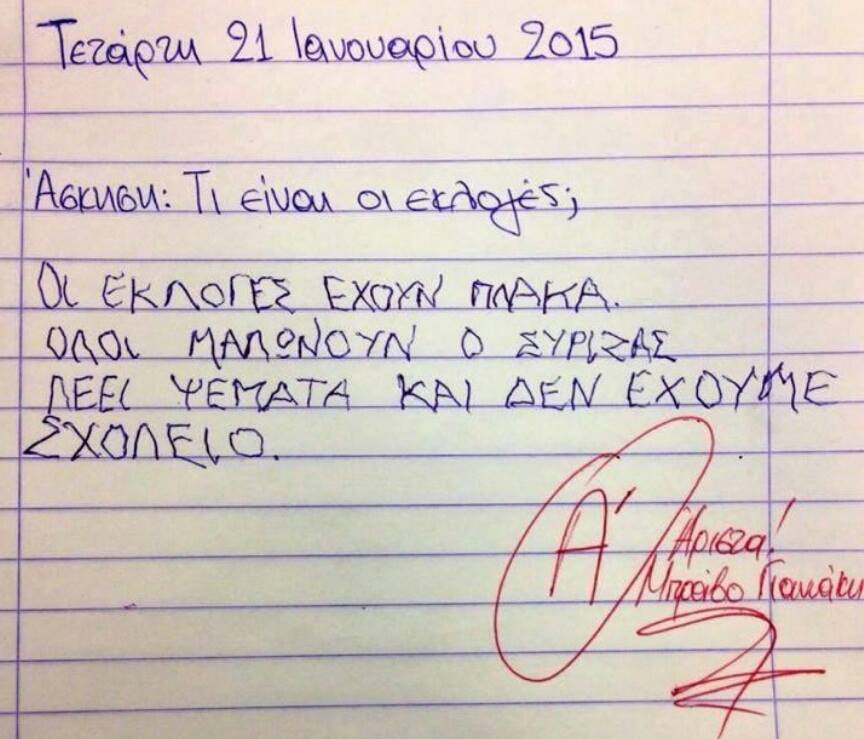 Τετάρτη 21 Ιανουαρίου 2015
Άσκηση: Τι είναι οι εκλογές;
ΟΙ ΕΚΛΟΓΕΣ ΕΧΟΥΝ ΠΛΑΚΑ.
ΟΛΟΙ ΜΑΛΩΝΟΥΝ Ο ΣΥΡΙΖΑΣ
ΛΕΕΙ ΨΕΜΑΤΑ ΚΑΙ ΔΕΝ ΕΧΟΥΜΕ
ΣΧΟΛΕΙΟ.
Α' Άριστα!
Μπράβο Γιανάκη